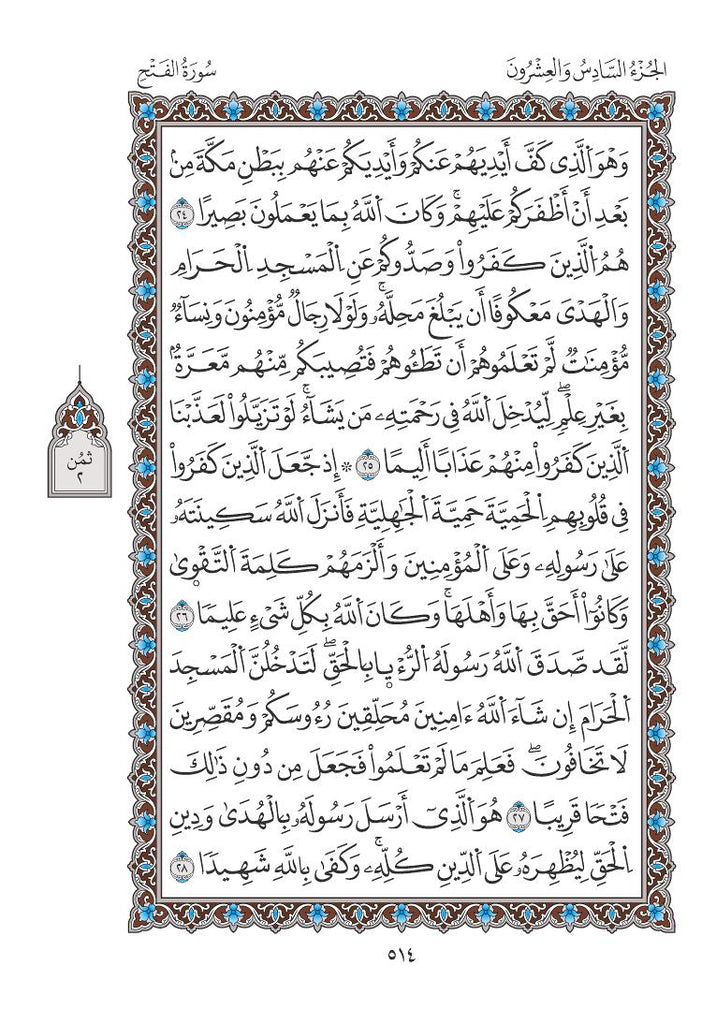 الجُزْءُ السَّادِسُ وَالعِشْرُونَ
سُورَةُ الفَتْحِ
وَهُوَ اَ۬لذِے كَفَّ أَيْدِيَهُمْ عَنكُمْ وَأَيْدِيَكُمْ عَنْهُم بِبَطْنِ مَكَّةَ مِنۢ
بَعْدِ أَنْ أَظْفَرَكُمْ عَلَيْهِمْۖ وَكَانَ اَ۬للَّهُ بِمَا يَعْمَلُونَ بَصِيرًا ٢٤
هُمُ اُ۬لذِينَ كَفَرُواْ وَصَدُّوكُمْ عَنِ اِ۬لْمَسْجِدِ اِ۬لْحَرَامِ
وَالْهَدْيَ مَعْكُوفًا أَن يَبْلُغَ مَحِلَّهُۥۖ وَلَوْلَا رِجَالٌ مُّؤْمِنُونَ وَنِسَآءٌ
مُّؤْمِنَٰتٌ لَّمْ تَعْلَمُوهُمْ أَن تَطَـُٔوهُمْ فَتُصِيبَكُم مِّنْهُم مَّعَرَّةٌۢ
بِغَيْرِ عِلْمٍۖ لِّيُدْخِلَ اَ۬للَّهُ فِے رَحْمَتِهِۦ مَن يَشَآءُۖ لَوْ تَزَيَّلُواْ لَعَذَّبْنَا
اَ۬لذِينَ كَفَرُواْ مِنْهُمْ عَذَابًا أَلِيمًا ٢٥ ۞ إِذْ جَعَلَ اَ۬لذِينَ كَفَرُواْ
فِے قُلُوبِهِمِ اِ۬لْحَمِيَّةَ حَمِيَّةَ اَ۬لْجَٰهِلِيَّةِ فَأَنزَلَ اَ۬للَّهُ سَكِينَتَهُۥ
عَلَىٰ رَسُولِهِۦ وَعَلَى اَ۬لْمُؤْمِنِينَ وَأَلْزَمَهُمْ كَلِمَةَ اَ۬لتَّقْوٜىٰ
وَكَانُوٓاْ أَحَقَّ بِهَا وَأَهْلَهَاۖ وَكَانَ اَ۬للَّهُ بِكُلِّ شَےْءٍ عَلِيمًا ٢٦
لَّقَد صَّدَقَ اَ۬للَّهُ رَسُولَهُ اُ۬لرُّءْيٜا بِالْحَقِّۖ لَتَدْخُلُنَّ اَ۬لْمَسْجِدَ
اَ۬لْحَرَامَ إِن شَآءَ اَ۬للَّهُ ءَامِنِينَ مُحَلِّقِينَ رُءُوسَكُمْ وَمُقَصِّرِينَ
لَا تَخَافُونَۖ فَعَلِمَ مَا لَمْ تَعْلَمُواْ فَجَعَلَ مِن دُونِ ذَٰلِكَ
فَتْحًا قَرِيبًا ٢٧ هُوَ اَ۬لذِےٓ أَرْسَلَ رَسُولَهُۥ بِالْهُدَىٰ وَدِينِ
اِ۬لْحَقِّ لِيُظْهِرَهُۥ عَلَى اَ۬لدِّينِ كُلِّهِۦۖ وَكَفَىٰ بِاللَّهِ شَهِيدًا ٢٨
ثُمُن
٢
٥١٤